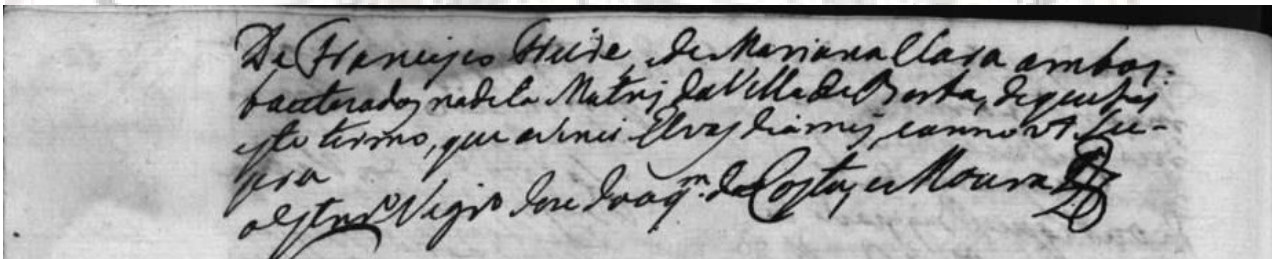 De Francisco Freire, e de Mariana Clara ambos
bautizados na de la Matriz da Villa de Borba, de que fis
este termo, que asinei Elvas dia mes, e anno ut su-
pra
o Vigr.o Jose Joaq.m da Costa, e Moura